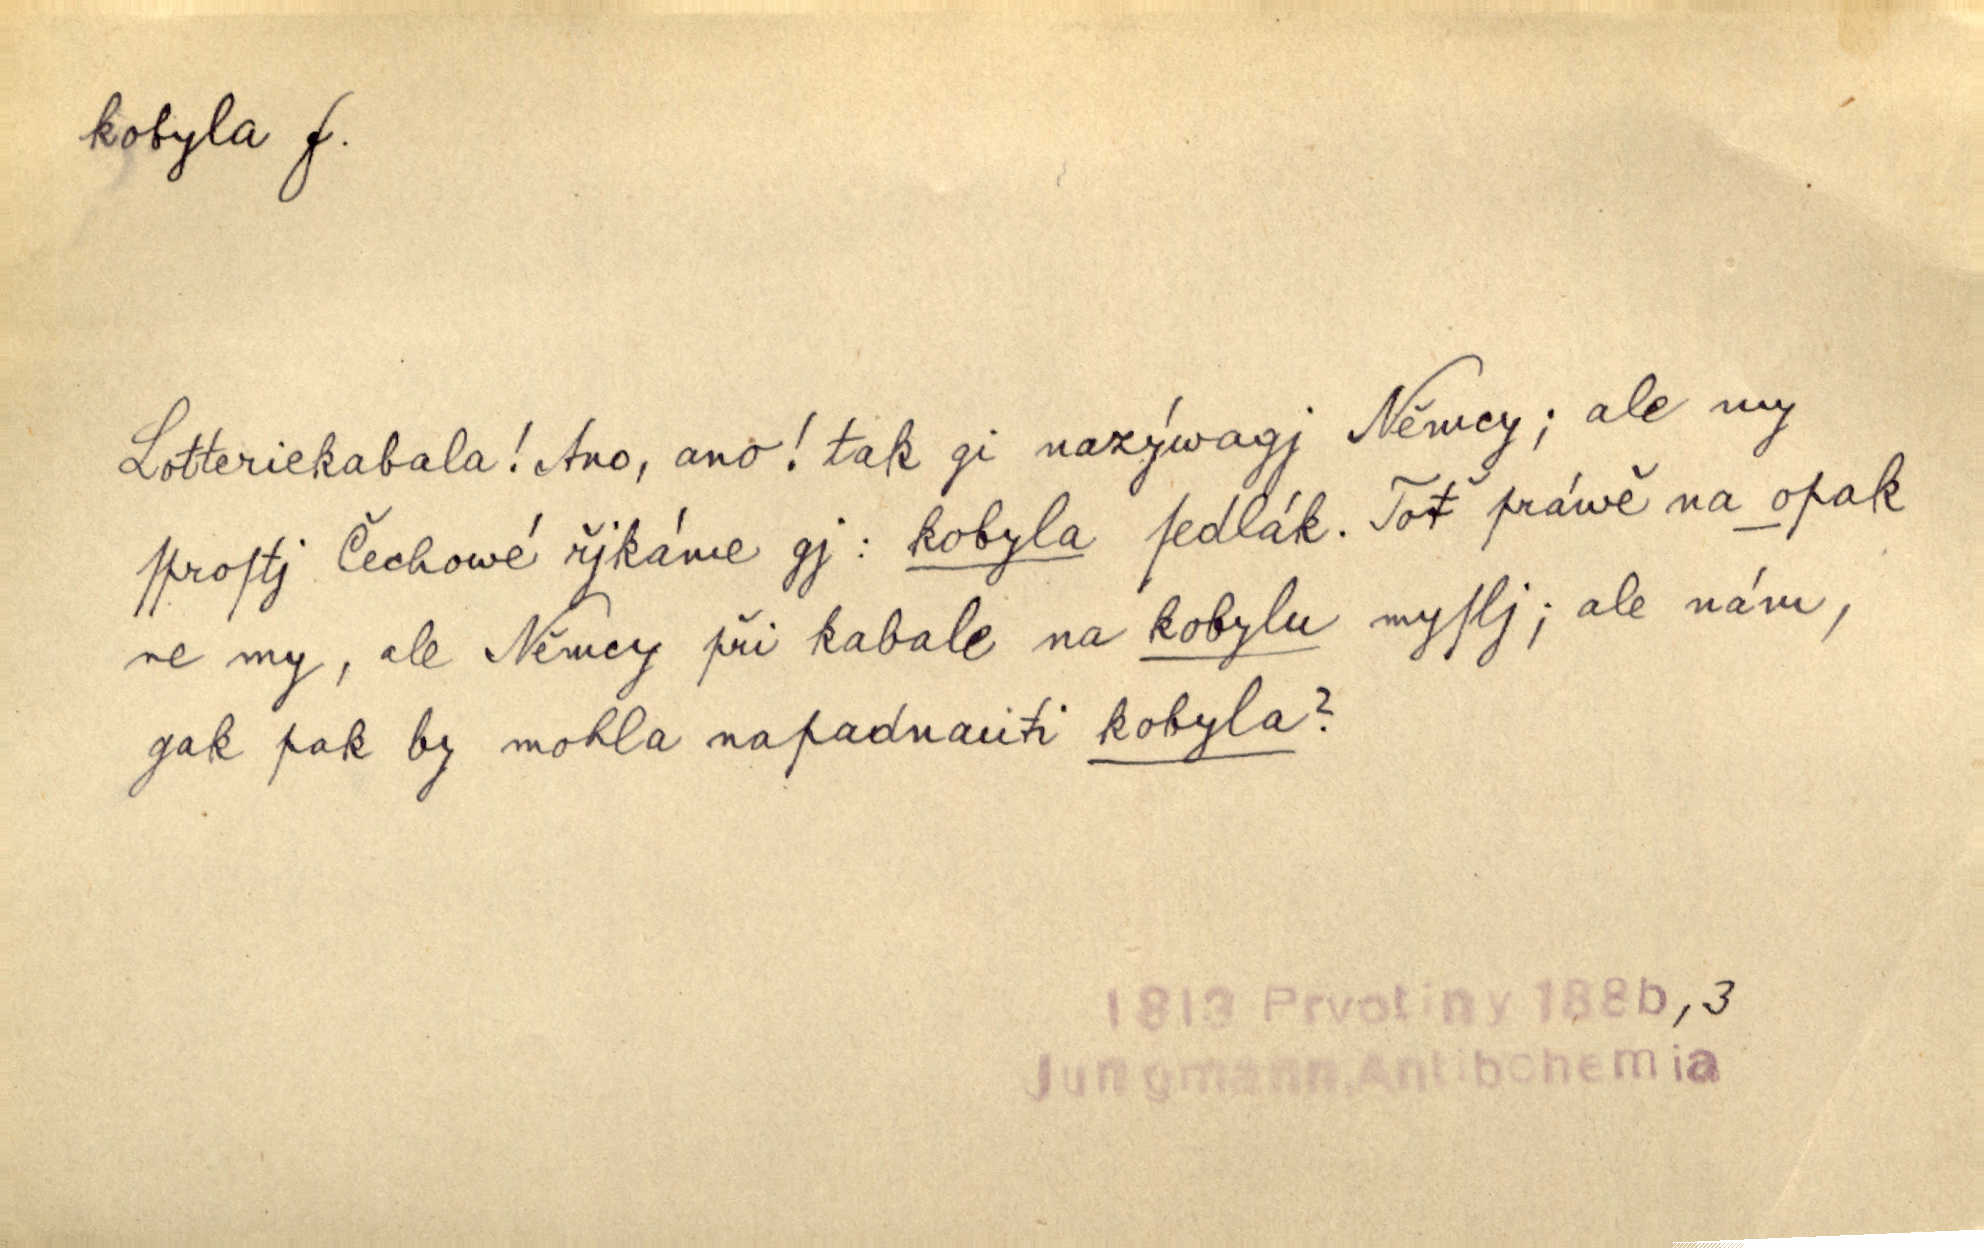 kobyla f.
Lotteriekabala! Ano, ano! tak gi nazýwagj Němcy; ale my
ſproſtj Čechowé řjkáme gj: kobyla ſedlák. Toť práwě na opak
ne my, ale Němcy při kabale na kobylu myſlj; ale nám,
gak pak by mohla napadnauti kobyla?
1813 Prvotiny 188b, 3
Jungmann, Antibohemia